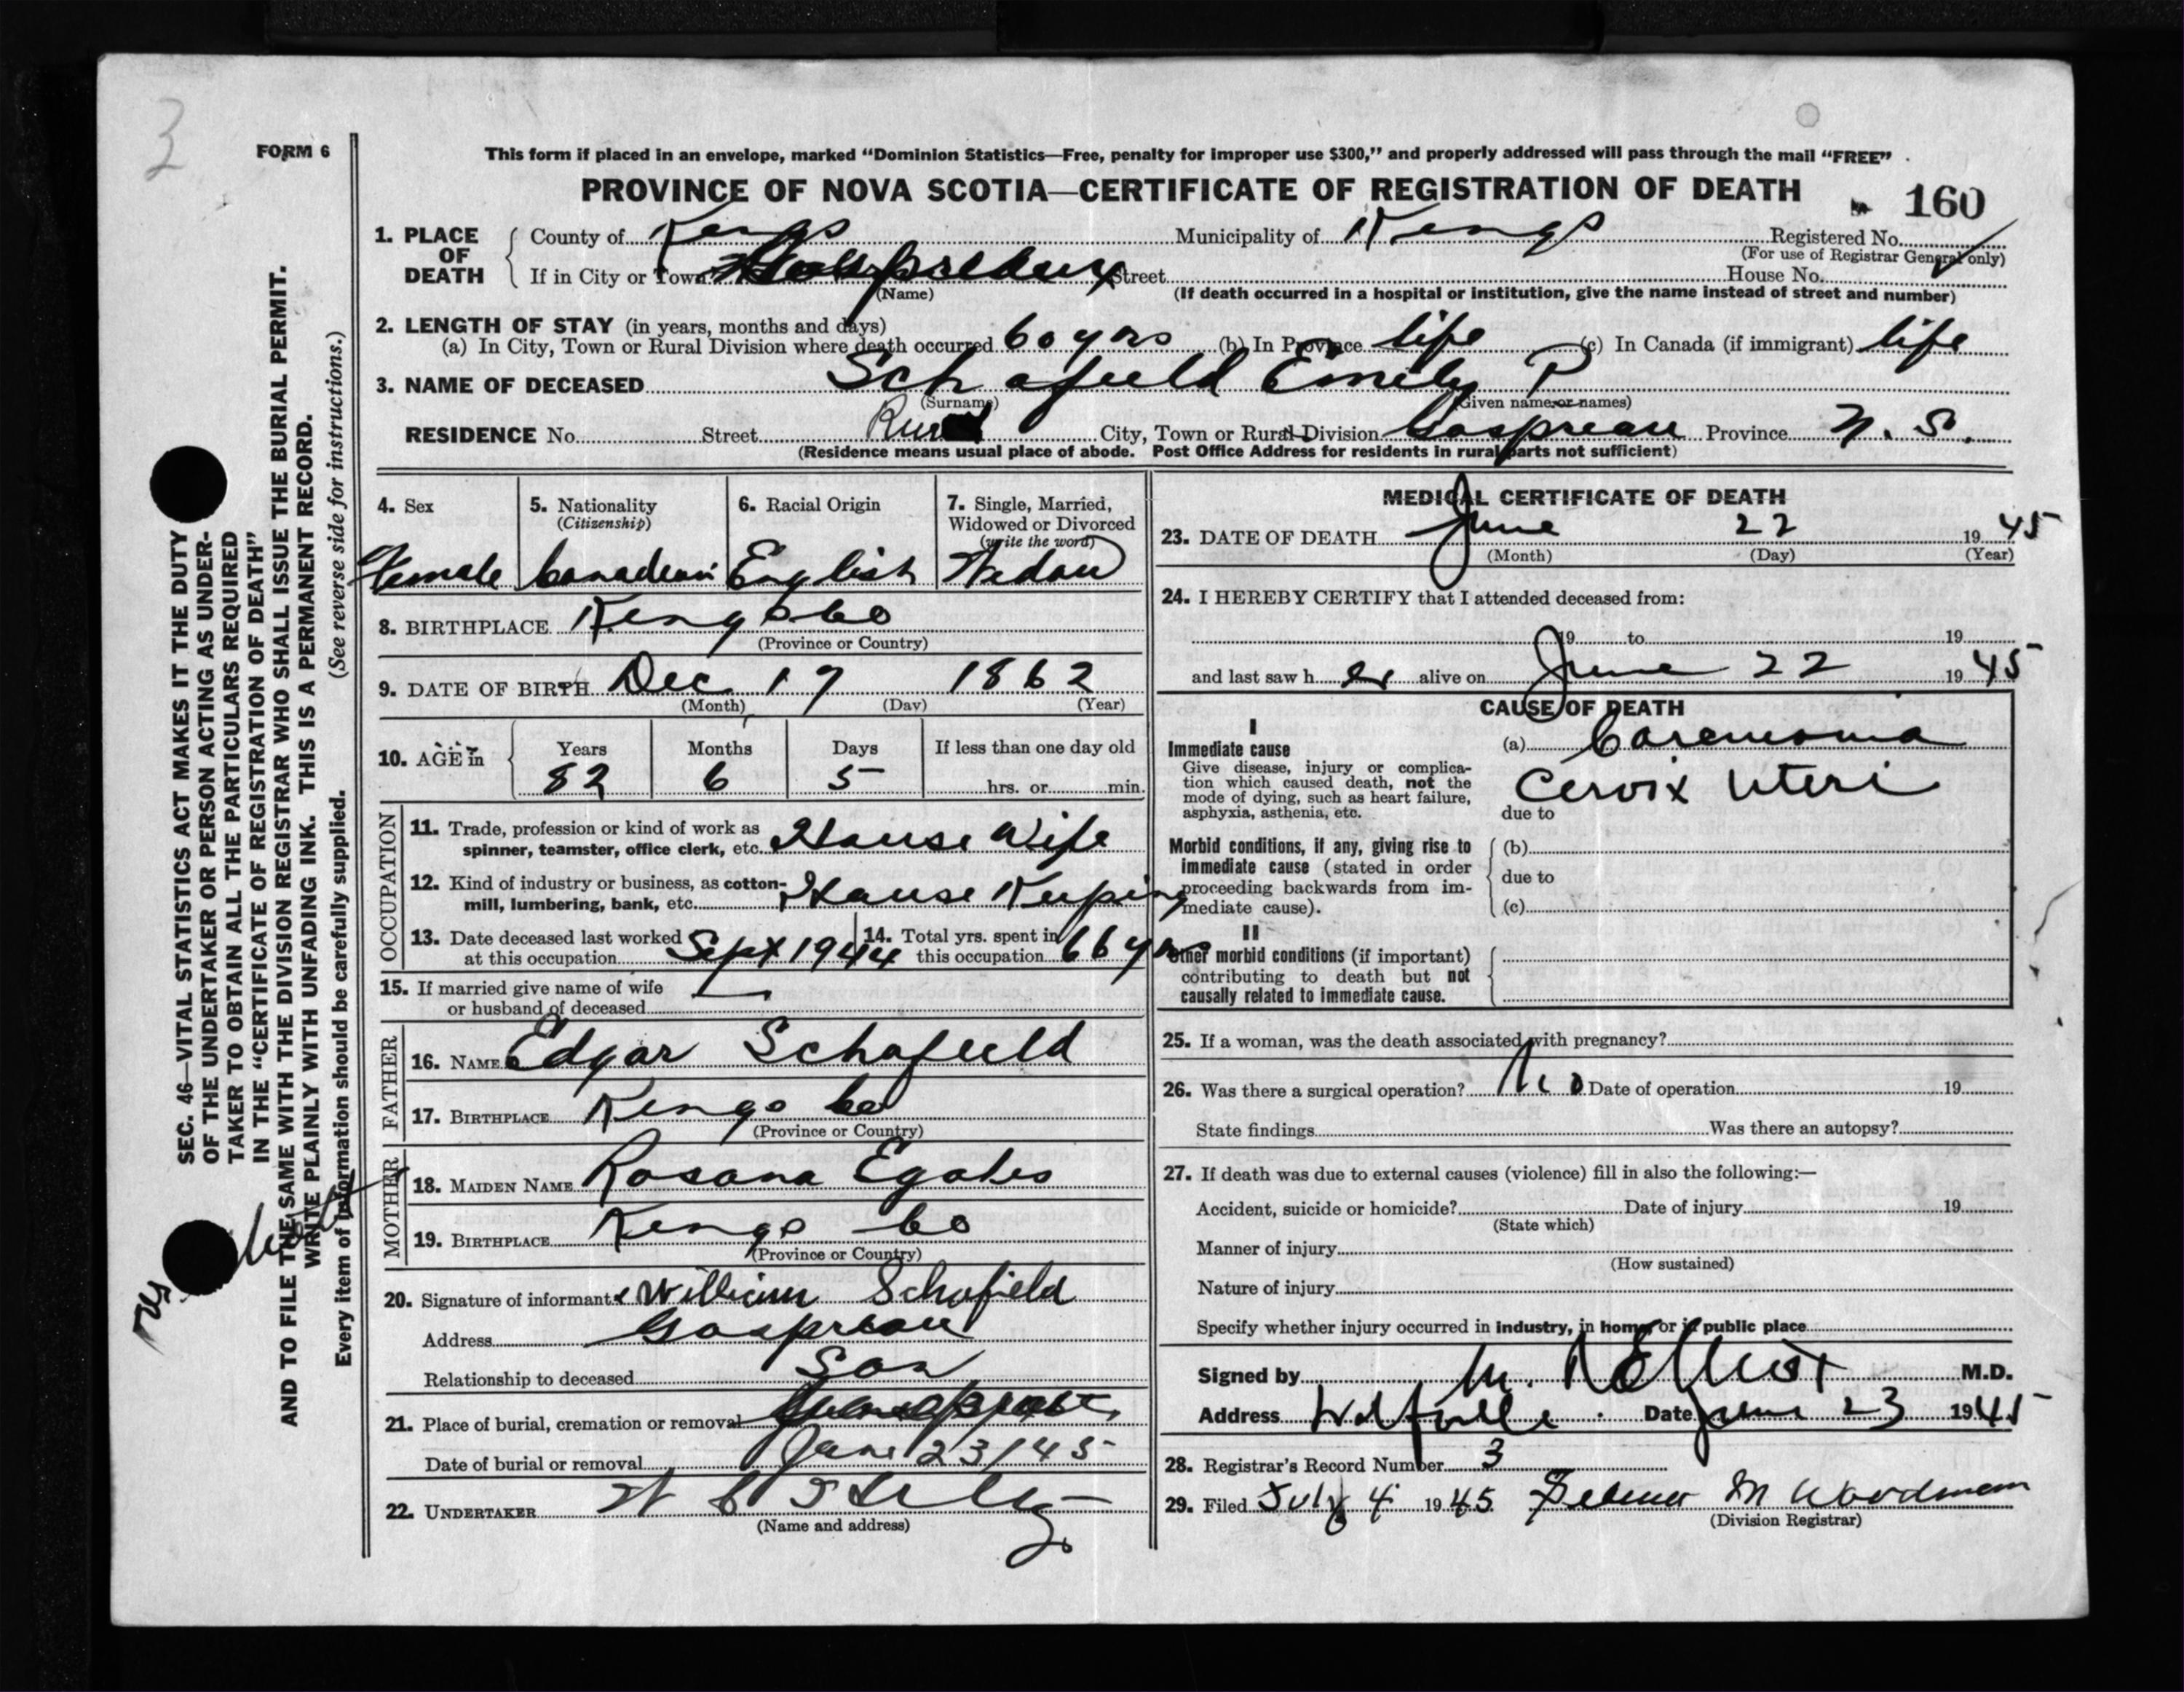 3
FORM 6
This form if placed in an envelope, marked “Dominion Statistics—Free, penalty for improper use $300,” and properly addressed will pass through the mail “FREE”
PROVINCE OF NOVA SCOTIA—CERTIFICATE OF REGISTRATION OF DEATH
160
1. PLACE OF DEATH
County of Kings Municipality of Kings Registered No.
(For use of Registrar General only)
If in City or Town Street House No.
(Name) (If death occurred in a hospital or institution, give the name instead of street and number)
2. LENGTH OF STAY (in years, months and days)
(a) In City, Town or Rural Division where death occurred 60 yrs (b) In Province life (c) In Canada (if immigrant) life
3. NAME OF DECEASED Schofield Emily P
(Surname) (Given name or names)
RESIDENCE No. Street City, Town or Rural Division Gaspreau Province N. S.
(Residence means usual place of abode. Post Office Address for residents in rural parts not sufficient)
4. Sex
Female
5. Nationality
(Citizenship)
Canadian
6. Racial Origin
English
7. Single, Married,
Widowed or Divorced
(write the word)
Widow
8. BIRTHPLACE Kings Co
(Province or Country)
9. DATE OF BIRTH Dec 17 1862
(Month) (Day) (Year)
10. AGE in Years Months Days If less than one day old
82 6 5 hrs. or min.
OCCUPATION
11. Trade, profession or kind of work as
spinner, teamster, office clerk, etc. House Wife
12. Kind of industry or business, as cotton-
mill, lumbering, bank, etc. House Keeping
13. Date deceased last worked
at this occupation Sept 1944
14. Total yrs. spent in
this occupation 66 yrs
15. If married give name of wife
or husband of deceased —
FATHER
16. NAME Edgar Schofield
17. BIRTHPLACE Kings Co
(Province or Country)
MOTHER
18. MAIDEN NAME Rosana
19. BIRTHPLACE Kings Co
(Province or Country)
20. Signature of informant x William Schofield
Address Gaspreau
Relationship to deceased Son
21. Place of burial, cremation or removal
Date of burial or removal June 23/45
22. UNDERTAKER
(Name and address)
MEDICAL CERTIFICATE OF DEATH
23. DATE OF DEATH June 22 1945
(Month) (Day) (Year)
24. I HEREBY CERTIFY that I attended deceased from:
19 to 19
and last saw h er alive on June 22 1945
CAUSE OF DEATH
I
Immediate cause
Give disease, injury or complica-
tion which caused death, not the
mode of dying, such as heart failure,
asphyxia, asthenia, etc.
(a) Carcinoma
Cervix Uteri
due to
Morbid conditions, if any, giving rise to
immediate cause (stated in order
proceeding backwards from im-
mediate cause).
(b)
due to
(c)
II
Other morbid conditions (if important)
contributing to death but not
causally related to immediate cause.
25. If a woman, was the death associated with pregnancy?
26. Was there a surgical operation? No Date of operation 19
State findings Was there an autopsy?
27. If death was due to external causes (violence) fill in also the following:—
Accident, suicide or homicide? Date of injury 19
(State which)
Manner of injury
(How sustained)
Nature of injury
Specify whether injury occurred in industry, in home, or in public place
Signed by M. R Elliot M.D.
Address Wolfville. Date June 23 1945
28. Registrar's Record Number 3
29. Filed July 4 1945 M Woodman
(Division Registrar)
SEC. 46—VITAL STATISTICS ACT MAKES IT THE DUTY
OF THE UNDERTAKER OR PERSON ACTING AS UNDER-
TAKER TO OBTAIN ALL THE PARTICULARS REQUIRED
IN THE “CERTIFICATE OF REGISTRATION OF DEATH”
AND TO FILE THE SAME WITH THE DIVISION REGISTRAR WHO SHALL ISSUE THE BURIAL PERMIT.
WRITE PLAINLY WITH UNFADING INK. THIS IS A PERMANENT RECORD.
Every item of information should be carefully supplied. (See reverse side for instructions.)